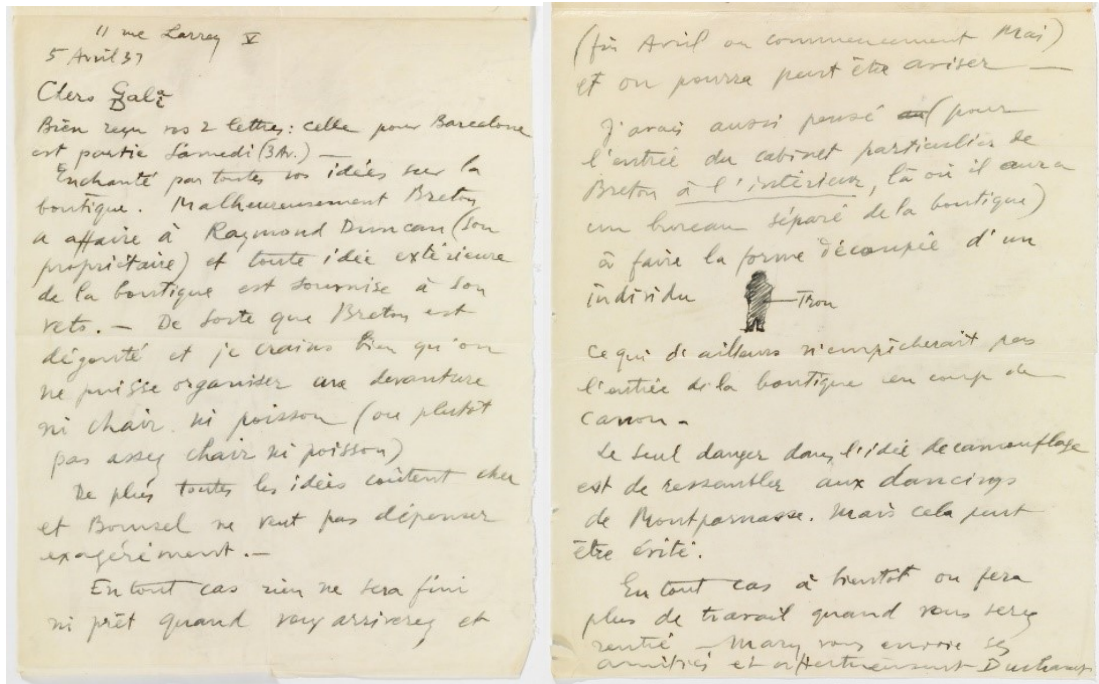 11 rue Larrey V
5 Avril 37
Chers Gala
Dali
Bien reçu vos 2 lettres: celle pour Barcelone
est partie Samedi (3 Av.) —
Enchanté par toutes vos idées sur la
boutique. Malheureusement Breton
a affaire à Raymond Duncan (son
propriétaire) et toute idée extérieure
de la boutique est soumise à son
veto. — De sorte que Breton est
dégouté et je crains bien qu'on
ne puisse organiser une devanture
ni chair ni poisson (ou plutôt
pas assez chair ni poisson)
De plus toutes les idées coûtent cher
et Bomsel ne veut pas dépenser
exagérément. —
En tout cas rien ne sera fini
ni prêt quand vous arriverez et
(fin Avril ou commencement Mai)
et on pourra peut être aviser —
J'avais aussi pensé (pour
l'entrée du cabinet particulier de
Breton à l'intérieur, là où il aura
un bureau séparé de la boutique)
à faire la forme découpée d'un
individu — Trou
ce qui d'ailleurs n'empêcherait pas
l'entrée de la boutique en coup de
canon –
Le seul danger dans l'idée de camouflage
est de ressembler aux dancings
de Montparnasse. Mais cela peut
être évité.
En tout cas à bientôt on fera
plus de travail quand vous serez
rentré – Mary vous envoie ses
amitiés et affectueusement Duchamp